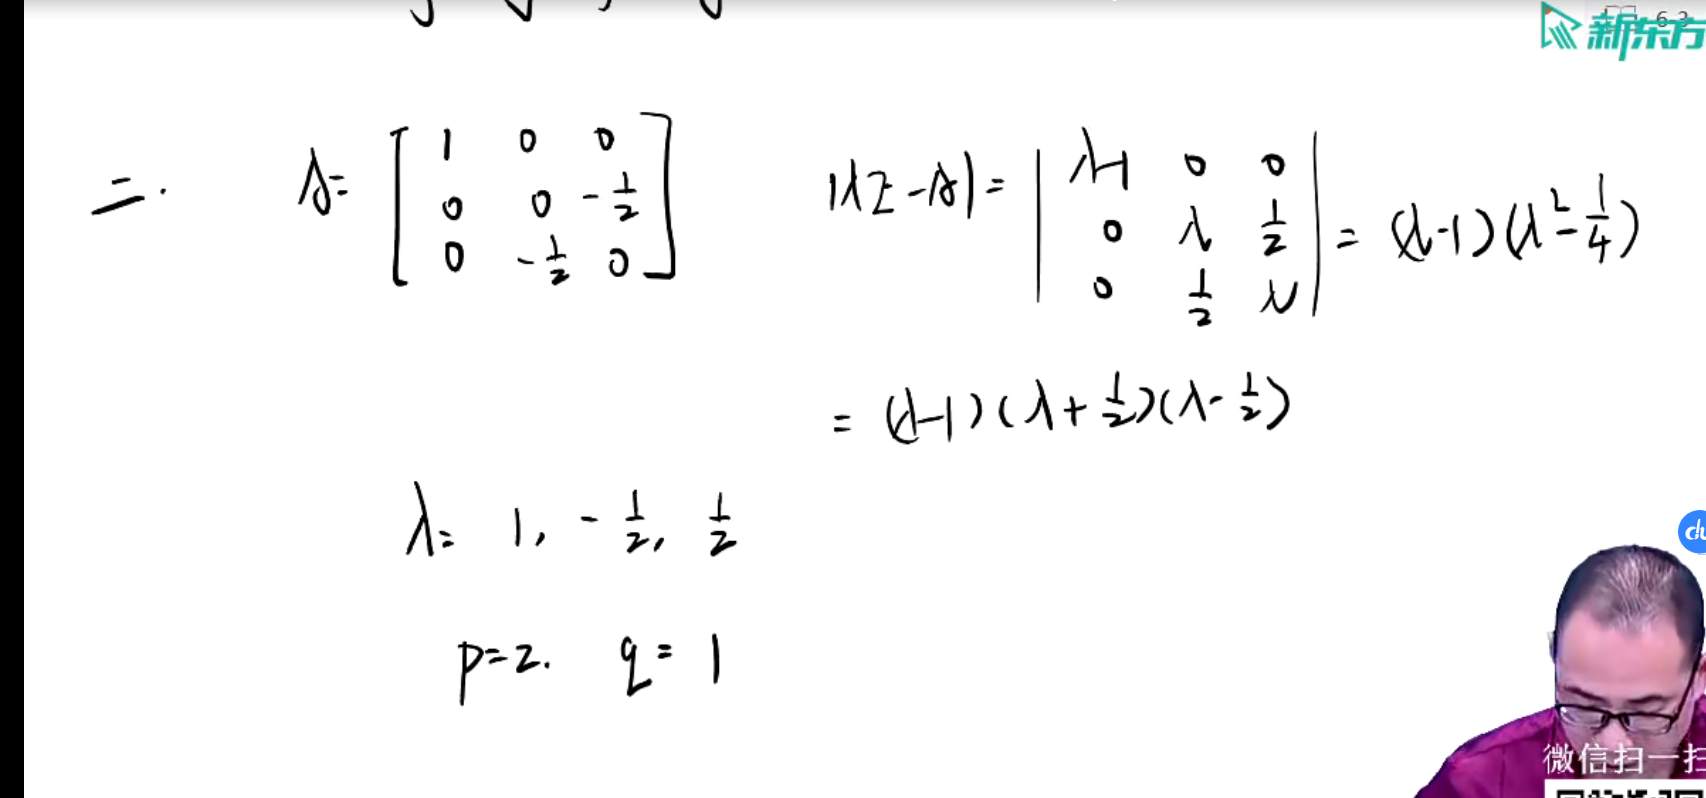 6-3
新东方
二. A= [ 1 0 0 ; 0 0 -1/2 ; 0 -1/2 0 ] |λE-A|= | λ-1 0 0 ; 0 λ 1/2 ; 0 1/2 λ | = (λ-1)(λ²-1/4)
= (λ-1)(λ+1/2)(λ-1/2)
λ= 1, -1/2, 1/2
p=2. q=1
微信扫一扫